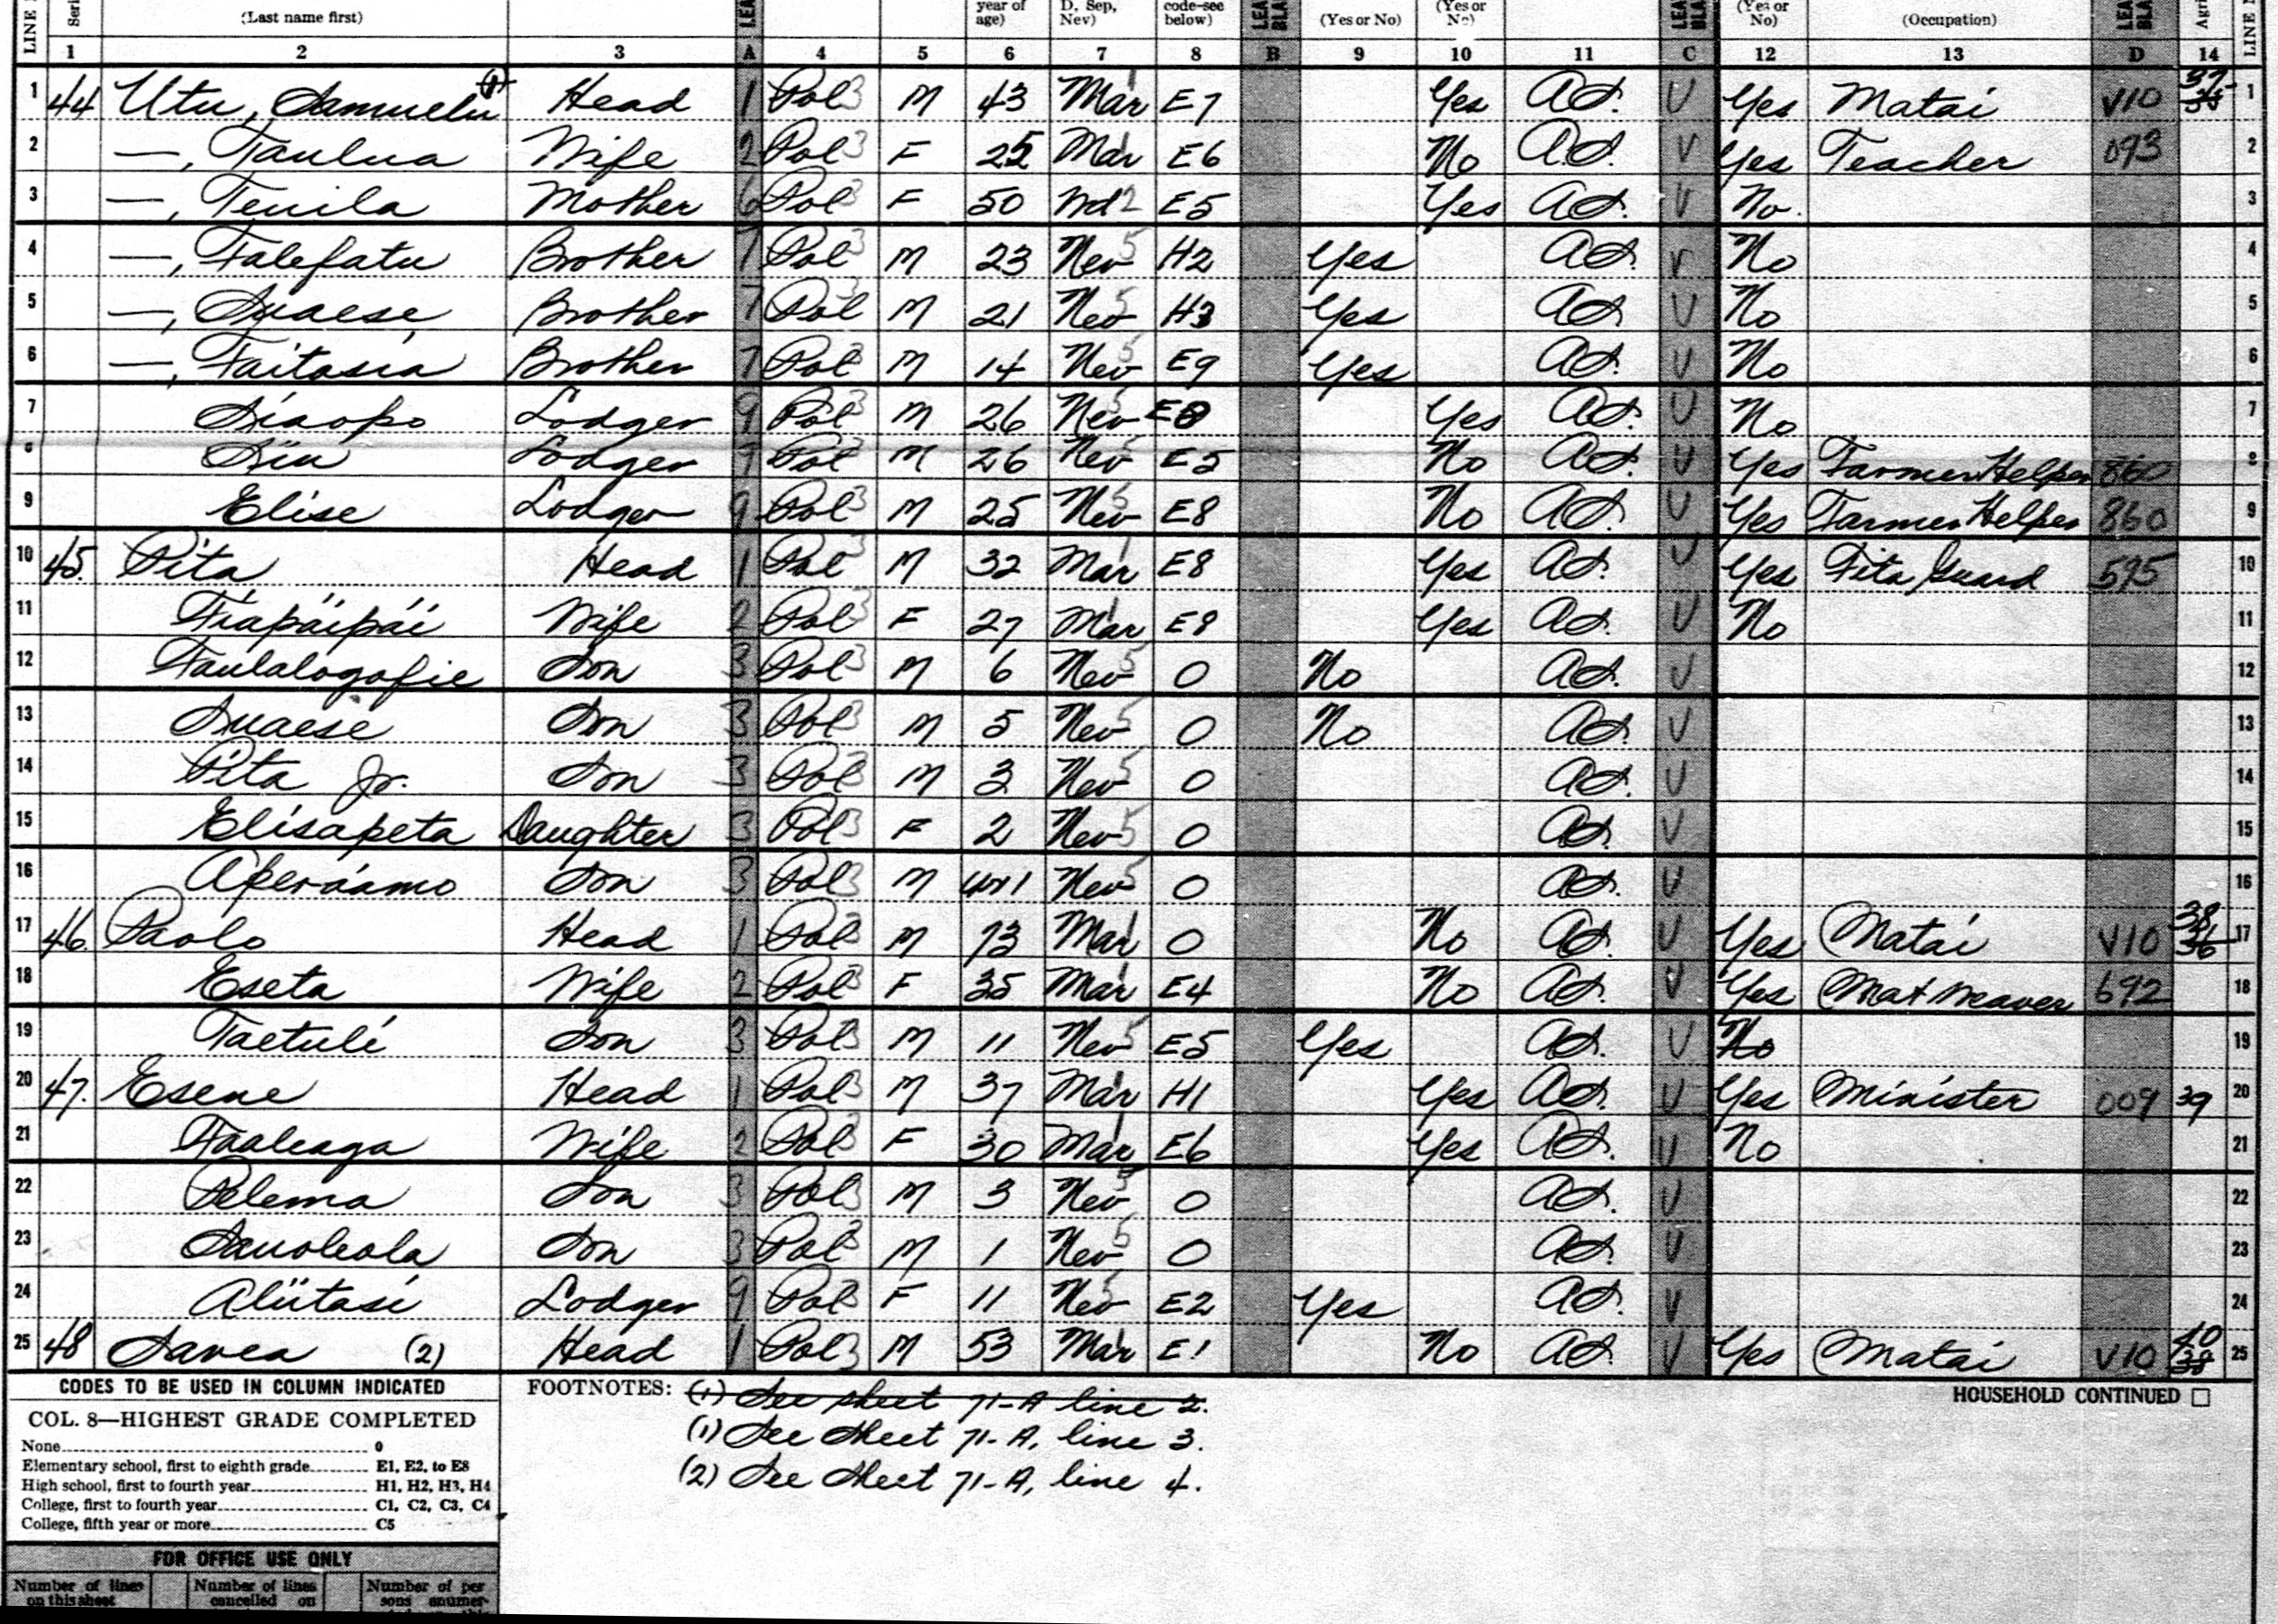 LINE Seri (Last name first) LEA year of age) D, Sep, Nev) code-see below) LEA BLA (Yes or No) (Yes or No) LEA BLA (Yes or No) (Occupation) LEA BLA Agri LINE
1 2 3 A 4 5 6 7 8 B 9 10 11 C 12 13 D 14
1 44 Utu, Samuelu (1) Head 1 Pol 3 M 43 Mar 1 E7 Yes A.S. V Yes Matai V10 37 35 1
2 —, Taulua Wife 2 Pol 3 F 25 Mar 1 E6 No A.S. V Yes Teacher 093 2
3 —, Teuila Mother 6 Pol 3 F 50 Wd 2 E5 Yes A.S. V No. 3
4 —, Falefatu Brother 7 Pol 3 M 23 Nev 5 H2 Yes A.S. V No 4
5 —, Suaese Brother 7 Pol 3 M 21 Nev 5 H3 Yes A.S. V No 5
6 —, Faitasia Brother 7 Pol 3 M 14 Nev 5 E9 Yes A.S. V No 6
7 Siaopo Lodger 9 Pol 3 M 26 Nev 5 E8 Yes A.S. V No 7
8 Siu Lodger 9 Pol 3 M 26 Nev 5 E5 No A.S. V Yes Farmer Helper 860 8
9 Elise Lodger 9 Pol 3 M 25 Nev 5 E8 No A.S. V Yes Farmer Helper 860 9
10 45. Pita Head 1 Pol 3 M 32 Mar 1 E8 Yes A.S. V Yes Fita Guard 595 10
11 Fiapaipai Wife 2 Pol 3 F 27 Mar 1 E8 Yes A.S. V No 11
12 Faulalogofie Son 3 Pol 3 M 6 Nev 5 0 No A.S. V 12
13 Suaese Son 3 Pol 3 M 5 Nev 5 0 No A.S. V 13
14 Pita Jr. Son 3 Pol 3 M 3 Nev 5 0 A.S. V 14
15 Elisapeta Daughter 3 Pol 3 F 2 Nev 5 0 A.S. V 15
16 Aperaamo Son 3 Pol 3 M un1 Nev 5 0 A.S. V 16
17 46. Paolo Head 1 Pol 3 M 73 Mar 1 0 No A.S. V Yes Matai V10 38 36 17
18 Eseta Wife 2 Pol 3 F 35 Mar 1 E4 No A.S. V Yes Mat Weaver 692 18
19 Taetuli Son 3 Pol 3 M 11 Nev 5 E5 Yes A.S. V No 19
20 47. Esene Head 1 Pol 3 M 37 Mar 1 H1 Yes A.S. V Yes Minister 009 39 20
21 Faaleaga Wife 2 Pol 3 F 30 Mar 1 E6 Yes A.S. V No 21
22 Pelema Son 3 Pol 3 M 3 Nev 5 0 A.S. V 22
23 Sauoleola Son 3 Pol 3 M 1 Nev 5 0 A.S. V 23
24 Aliitasi Lodger 9 Pol 3 F 11 Nev 5 E2 Yes A.S. V 24
25 48 Savea (2) Head 1 Pol 3 M 53 Mar 1 E1 No A.S. V Yes Matai V10 40 38 25
CODES TO BE USED IN COLUMN INDICATED
COL. 8—HIGHEST GRADE COMPLETED
None 0
Elementary school, first to eighth grade E1, E2, to E8
High school, first to fourth year H1, H2, H3, H4
College, first to fourth year C1, C2, C3, C4
College, fifth year or more C5
FOR OFFICE USE ONLY
Number of lines on this sheet
Number of lines cancelled on
Number of per sons enumer-
FOOTNOTES: (1) See sheet 71-A line 2.
(1) See Sheet 71-A, line 3.
(2) See Sheet 71-A, line 4.
HOUSEHOLD CONTINUED